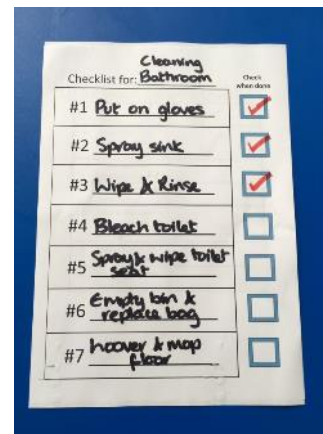 Cleaning
Checklist for: Bathroom
Check
when done
#1 Put on gloves
#2 Spray sink
#3 Wipe & Rinse
#4 Bleach toilet
#5 Spray & wipe toilet
seat
#6 Empty bin &
replace bag
#7 hoover & mop
floor